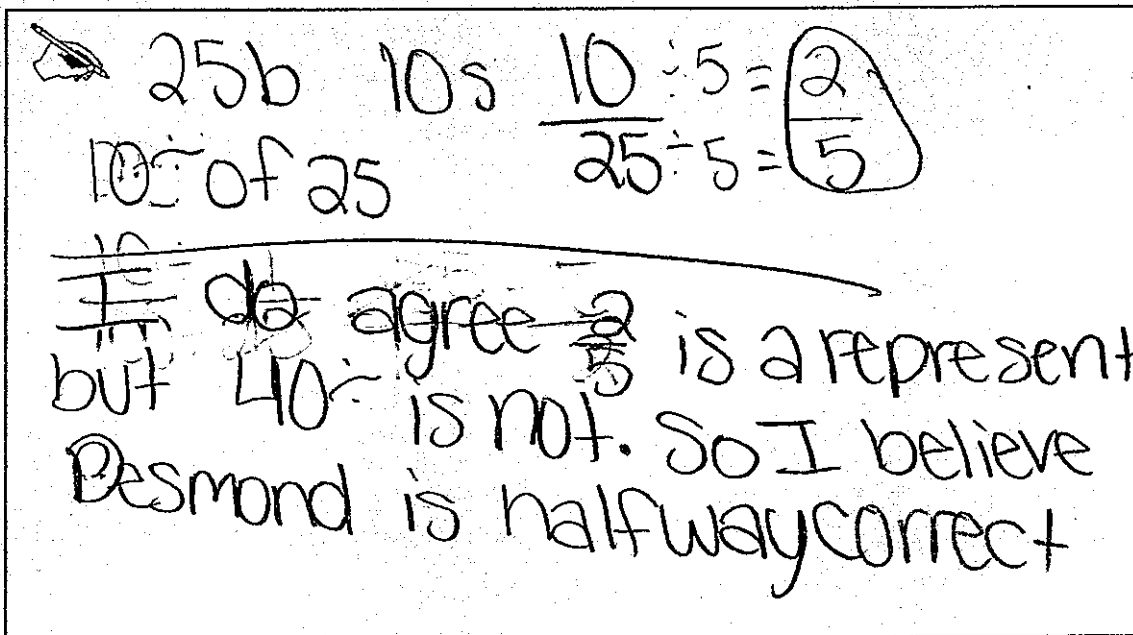 25b 10s 10/25 ÷5 = 2 ÷5 = 5
10÷ of 25
I do agree 2/5 is a represent
but 40÷ is not. So I believe
Desmond is halfway correct